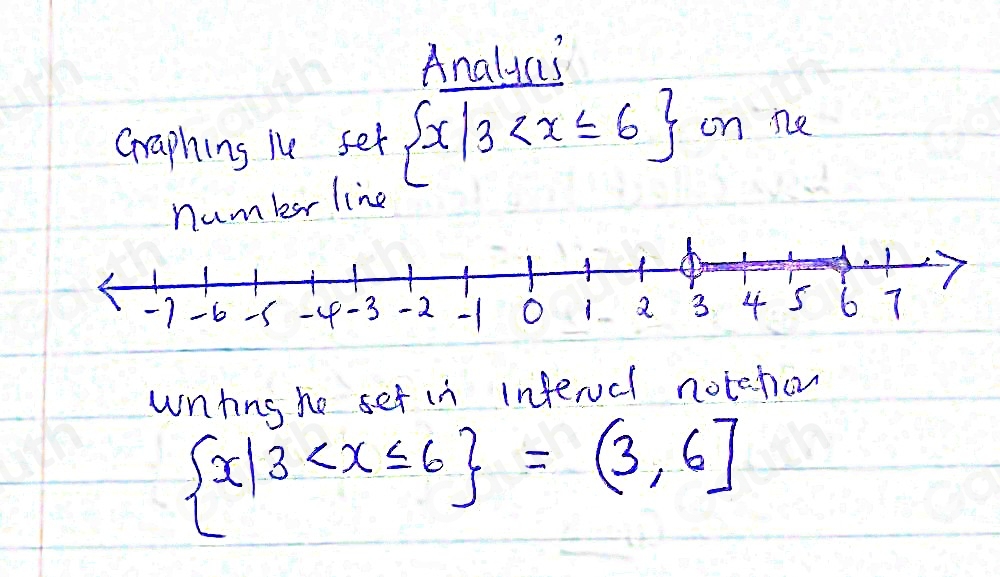 Analysis
Graphing the set {x|3<x≤6} on the
number line
-7 -6 -5 -4 -3 -2 -1 0 1 2 3 4 5 6 7
writing the set in interval notation
{x|3<x≤6} = (3, 6]